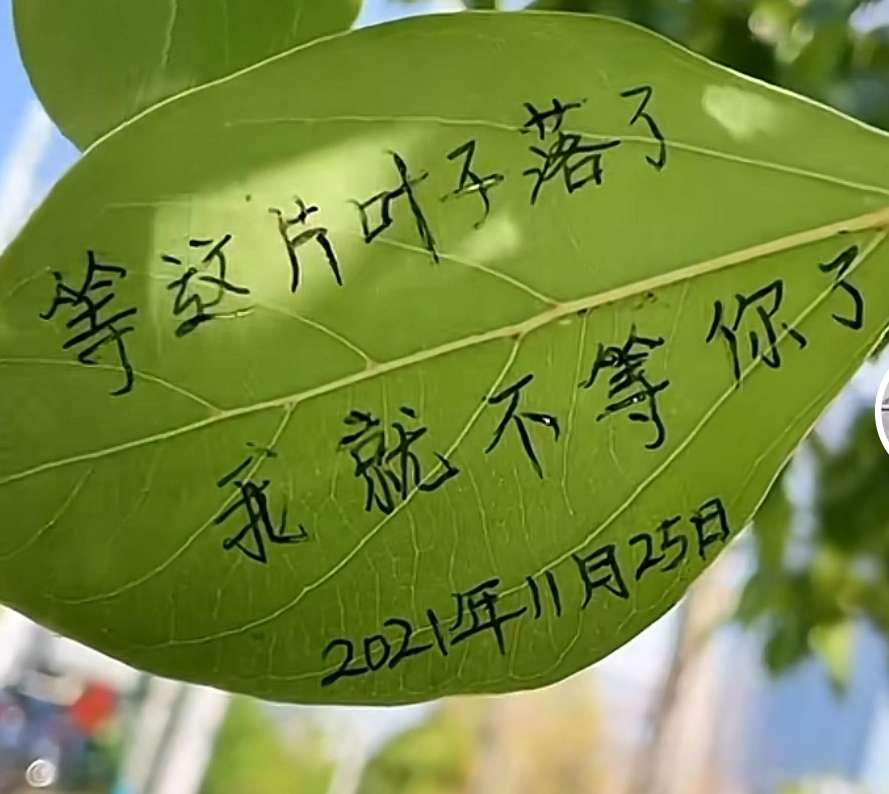 等这片叶子落了
我就不等你了
2021年11月25日